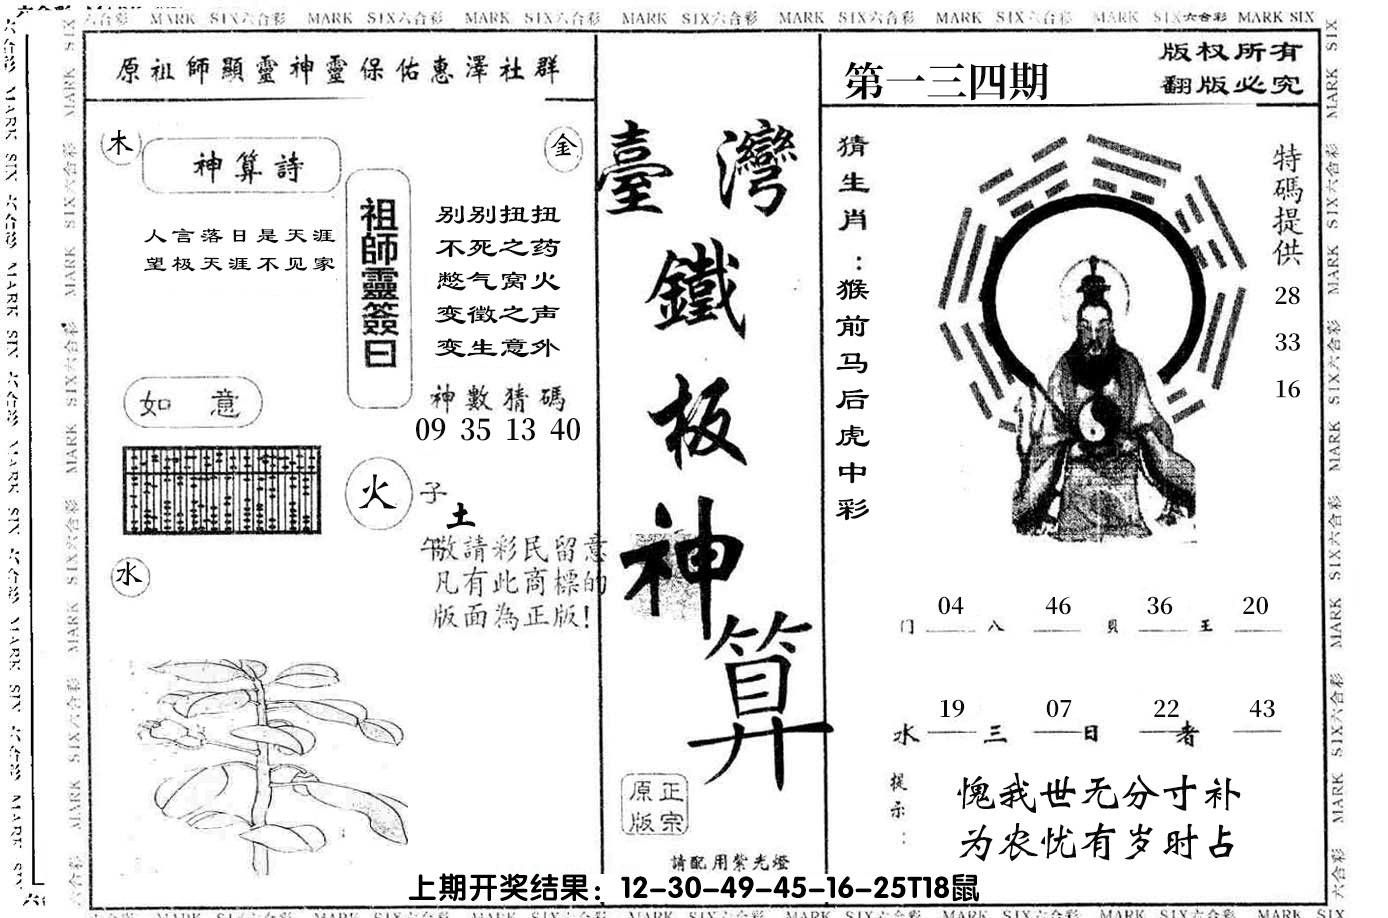 原祖師顯靈神靈保佑惠澤社群
木
神算詩
金
人言落日是天涯
望极天涯不见家
祖師靈簽曰
别别扭扭
不死之药
憋气窝火
变徵之声
变生意外
神數猜碼
09 35 13 40
如 意
火
子
土
午
水
敬請彩民留意
凡有此商標的
版面為正版!
臺灣
鐵
板
神
算
正宗
原版
請配用紫光燈
第一三四期
版权所有
翻版必究
猜生肖:猴前马后虎中彩
特碼提供
28
33
16
04 46 36 20
门 八 貝 王
19 07 22 43
水 三 日 者
提示:
愧我世无分寸补
为农忧有岁时占
上期开奖结果：12-30-49-45-16-25T18鼠
MARK SIX六合彩 MARK SIX六合彩 MARK SIX六合彩 MARK SIX六合彩 MARK SIX六合彩 MARK SIX六合彩 MARK SIX六合彩 MARK SIX